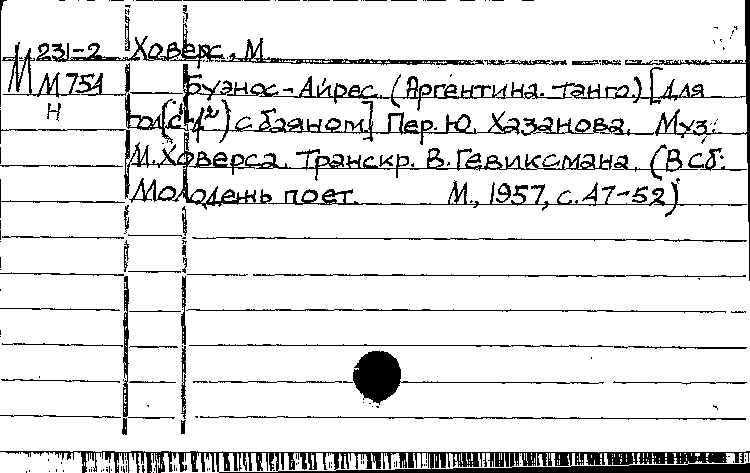 М 231-2 Ховерс, М.
М 754 Буэнос-Айрес. (Аргентина. танго.) [Для
Н гол. (c¹-f²) с баяном] Пер. Ю. Хазанова. Муз.
М. Ховерса. Транскр. В. Гевиксмана. (В сб:
Молодежь поет. М., 1957, с. 47-52)